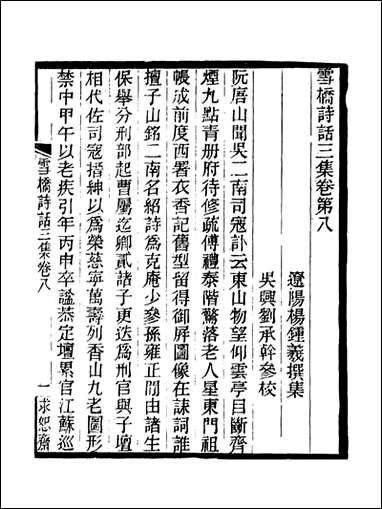 雪橋詩話三集卷第八
遼陽楊鍾羲撰集
吳興劉承幹參校
阮唐山聞吳二南司寇訃云東山物望仰雲亭目斷齊
煙九點青册府待修疏傅禮泰階驚落老人星東門祖
帳成前度西署衣香記舊型留得御屏圖像在誄詞誰
擅子山銘二南名紹詩爲克庵少參孫雍正閒由諸生
保舉分刑部起曹屬迄卿貳諸子更迭爲刑官與子壇
相代佐司寇搢紳以爲榮慈寧萬壽列香山九老圖形
禁中甲午以老疾引年丙申卒謚恭定壇累官江蘇巡
雪橋詩話三集卷八
一
求恕齋